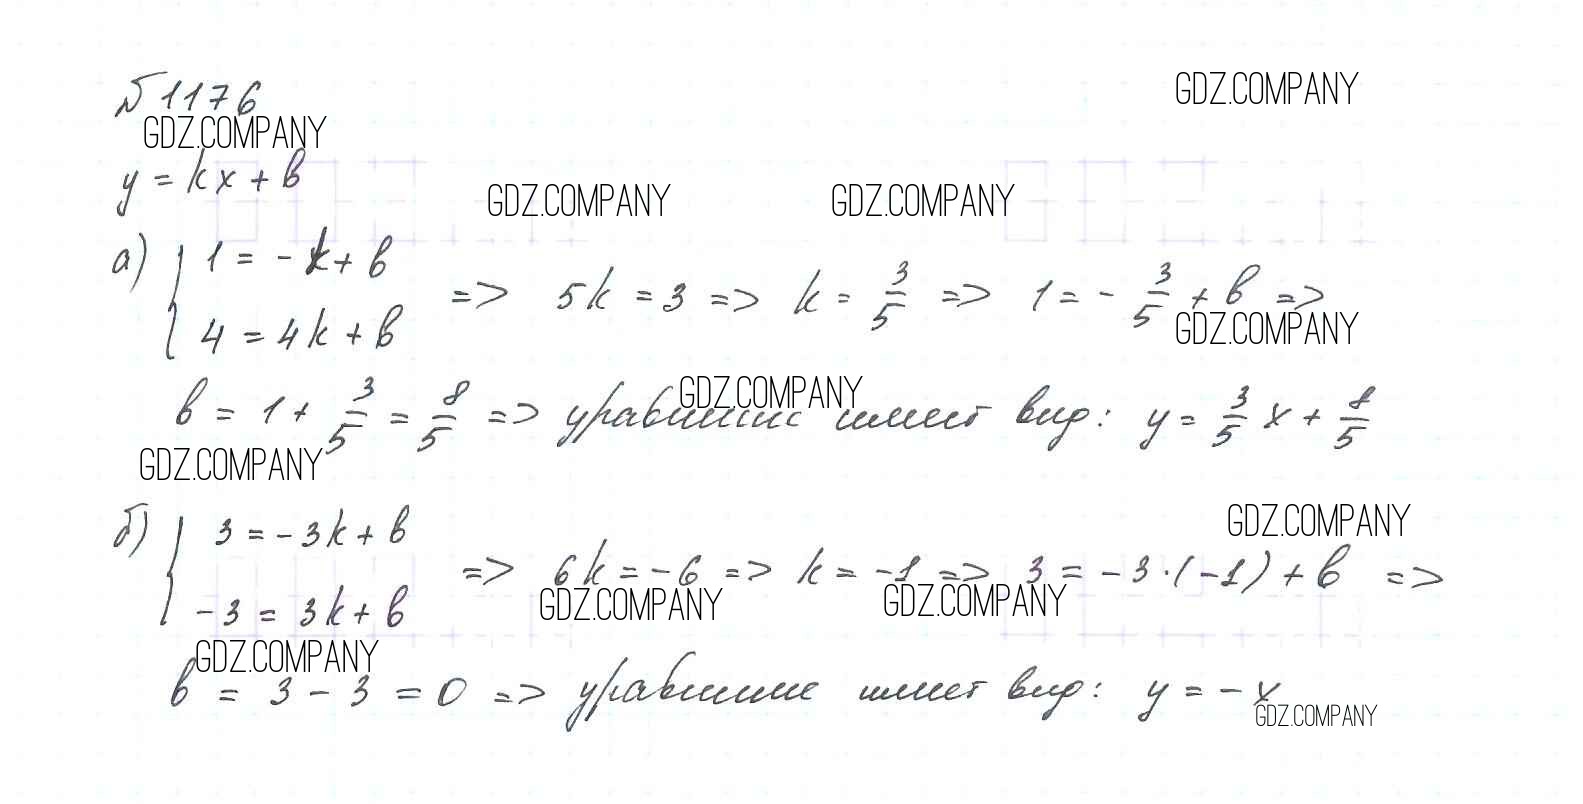 №1176
GDZ.COMPANY
GDZ.COMPANY
y = kx + b
GDZ.COMPANY
GDZ.COMPANY
а) { 1 = -k + b
4 = 4k + b
=> 5k = 3 => k = 3/5 => 1 = - 3/5 + b =>
GDZ.COMPANY
GDZ.COMPANY
b = 1 + 3/5 = 8/5 => уравнение имеет вид: y = 3/5 x + 8/5
GDZ.COMPANY
GDZ.COMPANY
б) { 3 = -3k + b
-3 = 3k + b
=> 6k = -6 => k = -1 => 3 = -3·(-1) + b =>
GDZ.COMPANY
GDZ.COMPANY
GDZ.COMPANY
b = 3 - 3 = 0 => уравнение имеет вид: y = -x
GDZ.COMPANY